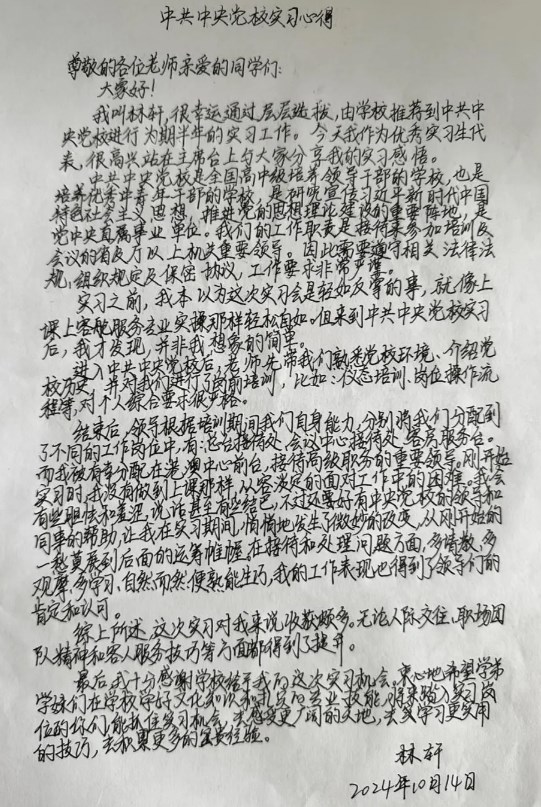 中共中央党校实习心得
尊敬的各位老师亲爱的同学们:
大家好!
我叫林轩,很幸运通过层层选拔,由学校推荐到中共中
央党校进行为期半年的实习工作。今天我作为优秀实习生代
表,很高兴站在主席台上向大家分享我的实习感悟。
中共中央党校是全国高中级培养领导干部的学校,也是
培养优秀中青年干部的学校,是研究宣传习近平新时代中国
特色社会主义思想,推进党的思想理论建设的重要阵地,是
党中央直属事业单位。我们的工作职责是接待来参加培训及
会议的省及厅以上机关重要领导。因此需要遵守相关法律法
规,组织规定及保密协议,工作要求非常严谨。
实习之前,我本以为这次实习会是轻如反掌的事,就像上
课上客舱服务专业实操那样轻松自如。但来到中共中央党校实习
后,我才发现,并非我想象的简单。
进入中共中央党校后,老师先带我们熟悉党校环境、介绍党
校历史,并对我们进行了岗前培训,比如:仪态培训、岗位操作流
程等,对个人综合要求很严格。
结束后,领导根据培训期间我们自身能力,分别将我们分配到
了不同的工作岗位中,有:总台接待处、会议中心接待处、客房服务台。
而我很有幸分配在港澳中心前台,接待高级职务的重要领导。刚开始
实习时,我没有做到上课那样,从容淡定的面对工作中的困难。我会
有些胆怯和羞涩,说话甚至有些结巴,不过还要好有中央党校的领导和
同事的帮助,让我在实习期间,悄悄地发生了微妙的改变,从刚开始的
一愁莫展到后面的运筹帷幄,在接待和处理问题方面,多请教、多
观摩、多学习,自然而然便熟能生巧,我的工作表现也得到了领导们的
肯定和认可。
综上所述,这次实习对我来说,收获颇多。无论人际交往、职场团
队精神和客人服务技巧等方面都得到了提升。
最后,我十分感谢学校给予我的这次实习机会。衷心地希望学弟
学妹们在学校学好文化知识和我们的专业技能,将来踏入实习岗
位的你们,能抓住实习机会,去感受更广阔的天地,去多学习更实用
的技巧,去积累更多的宝贵经验。
林轩
2024年10月14日